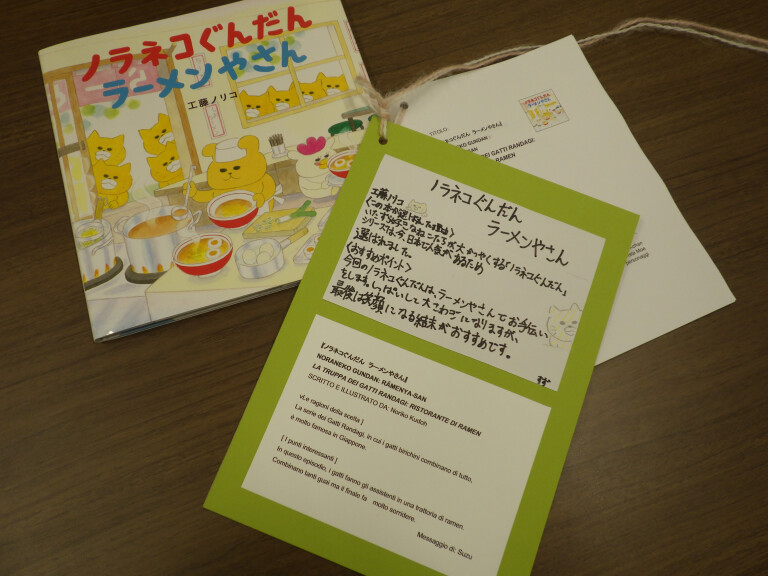 ノラネコぐんだん
ラーメンやさん
工藤ノリコ
TITOLO:
ノラネコぐんだん
ラーメンやさん
工藤ノリコ
〈この本が選ばれた理由〉
いたずらねこなねこたちが大かつやくする「ノラネコぐんだん」
シリーズは、今、日本で人気があるため
選ばれました。
〈おすすめポイント〉
今回のノラネコぐんだんは、ラーメンやさんでお手伝い
をします。しっぱいして大さわぎになりますが、
最後は笑顔になる結末がおすすめです。
『ノラネコぐんだん ラーメンやさん』
NORANEKO GUNDAN: RĀMENYA-SAN
LA TRUPPA DEI GATTI RANDAGI: RISTORANTE DI RAMEN
SCRITTO E ILLUSTRATO DA: Noriko Kudoh
‹Le ragioni della scelta ]
La serie dei Gatti Randagi, in cui i gatti birichini combinano di tutto,
è molto famosa in Giappone.
[ I punti interessanti ]
In questo episodio, i gatti fanno gli assistenti in una trattoria di ramen.
Combinano tanti guai ma il finale fa molto sorridere.
Messaggio di: Suzu